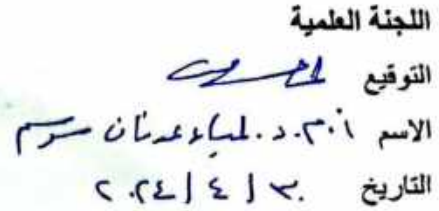 اللجنة العلمية
التوقيع
الاسم أ.م.د. لمياء عدنان
التاريخ ٣٠ / ٤ / ٢٠٢٤